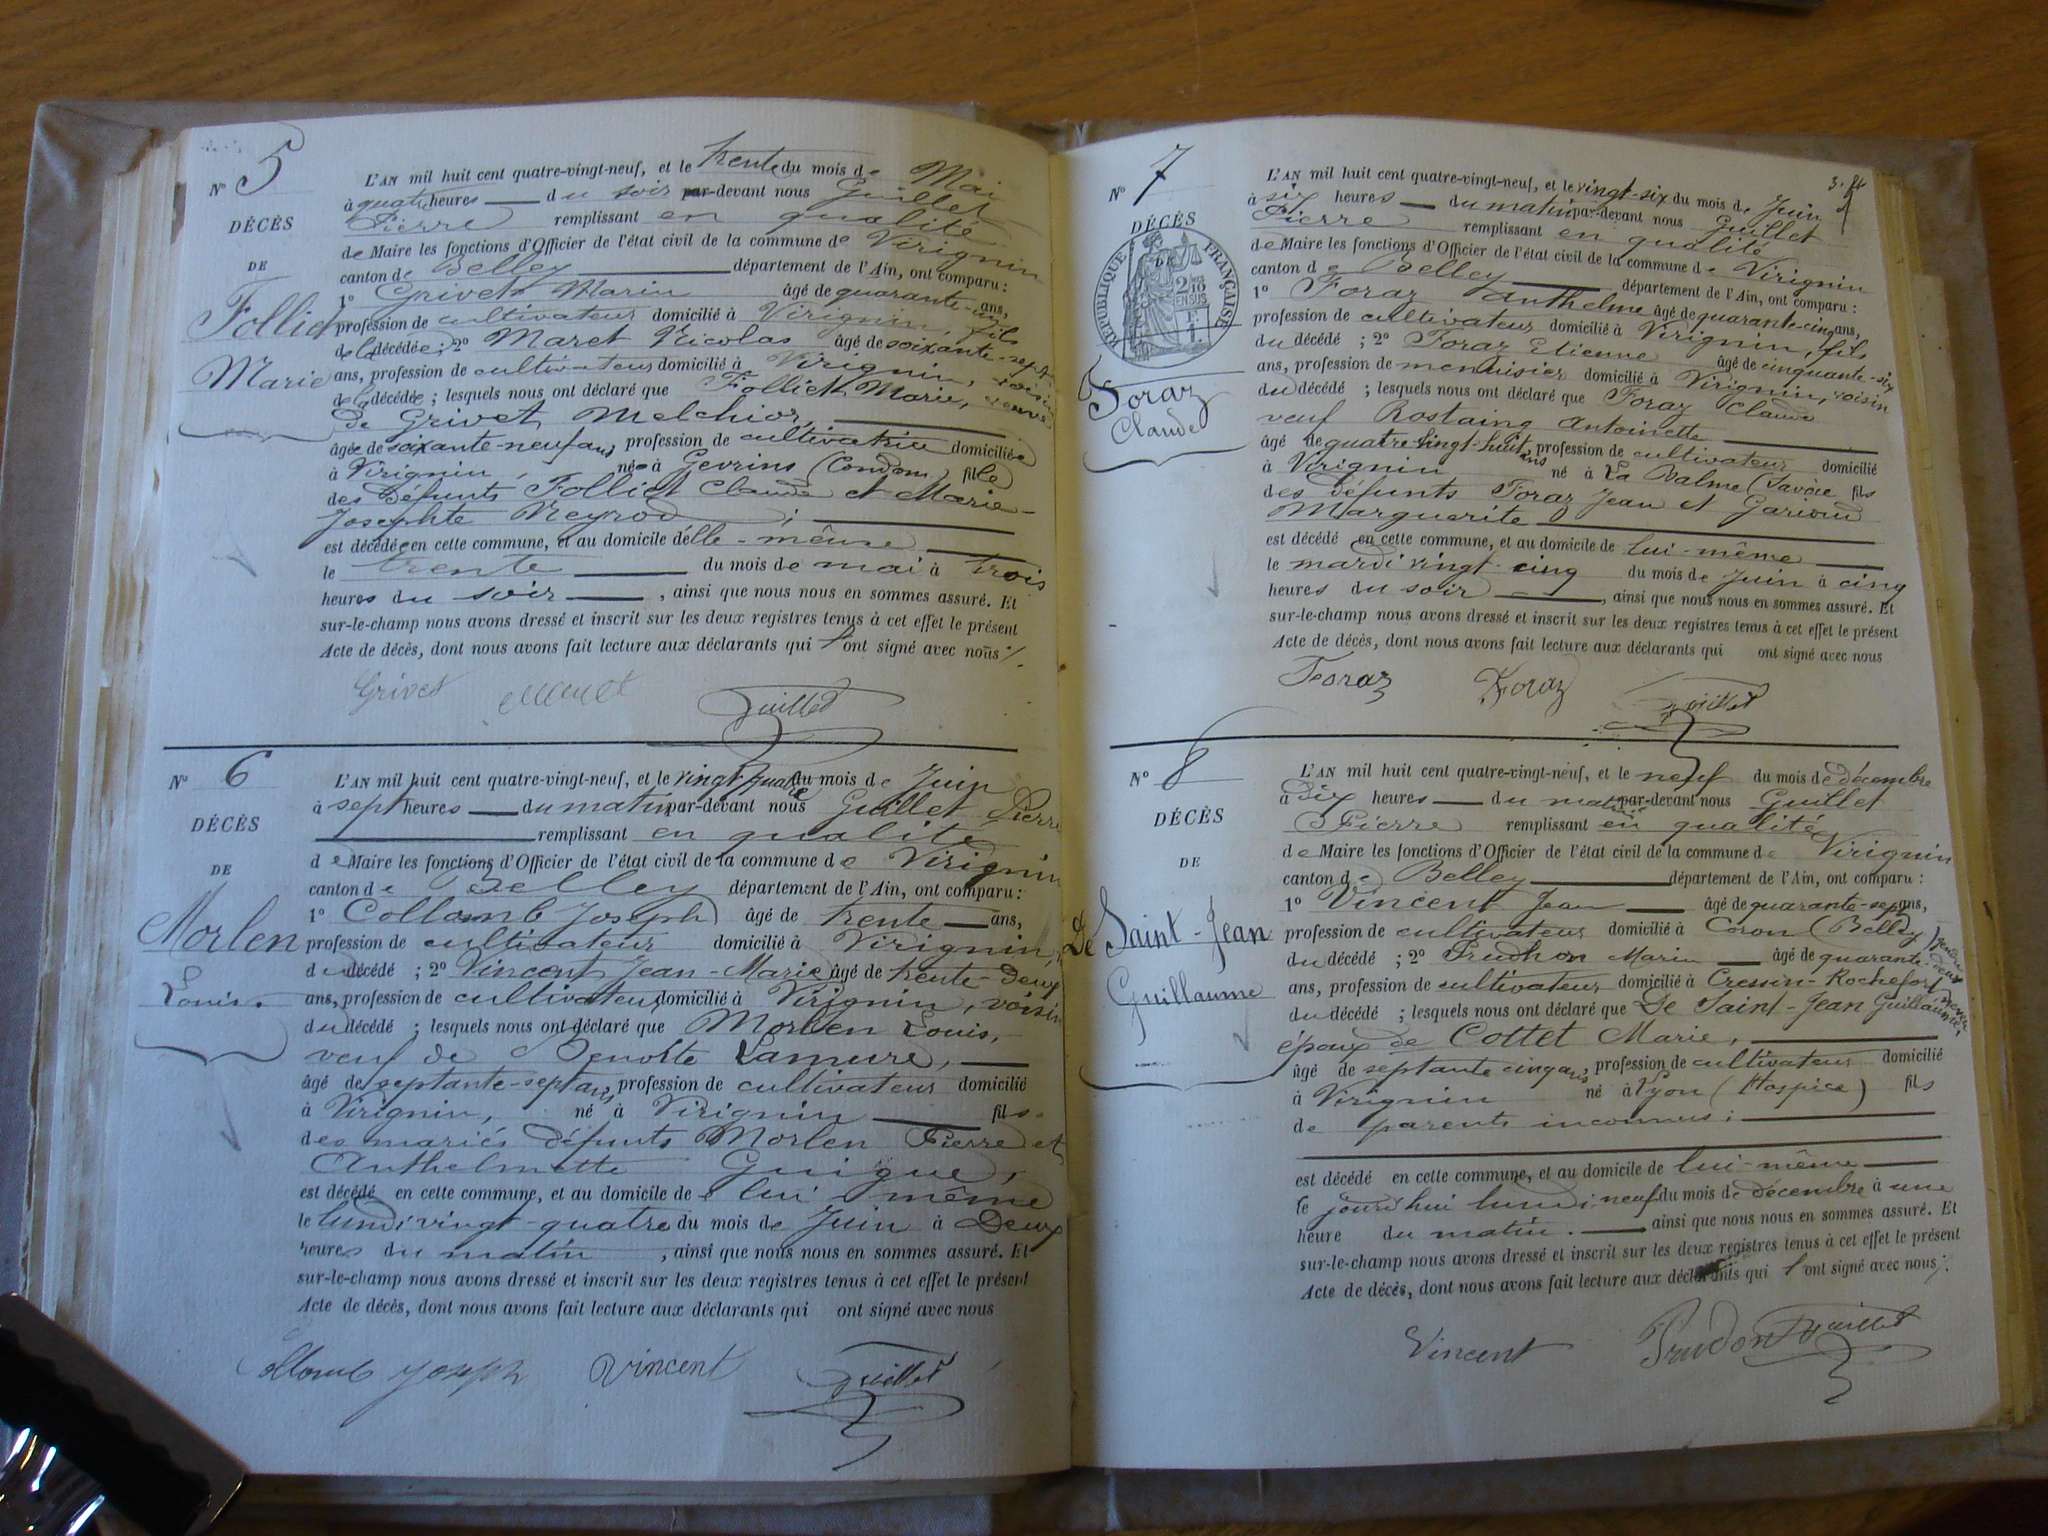 N° 5
DÉCÈS
DE
Folliet
Marie
L'AN mil huit cent quatre-vingt-neuf, et le trente du mois de Mai
à quatre heures du soir par-devant nous Guillet
Pierre remplissant en qualité
de Maire les fonctions d'Officier de l'état civil de la commune de Virignin
canton de Belley département de l'Ain, ont comparu :
1° Grivet Marin âgé de quarante-un ans,
profession de cultivateur domicilié à Virignin, fils
de la décédée ; 2° Maret Nicolas âgé de soixante-sept
ans, profession de cultivateur domicilié à Virignin, voisin
de la décédée ; lesquels nous ont déclaré que Folliet Marie, veuve
de Grivet Melchior,
âgée de soixante-neuf ans, profession de cultivatrice domiciliée
à Virignin, née à Gevrins (Condom) fille
des défunts Folliet Claude et Marie-
Josephte Neyrod ;
est décédée en cette commune, et au domicile d'elle-même
le trente du mois de mai à trois
heures du soir , ainsi que nous nous en sommes assuré. Et
sur-le-champ nous avons dressé et inscrit sur les deux registres tenus à cet effet le présent
Acte de décès, dont nous avons fait lecture aux déclarants qui l'ont signé avec nous
Grivet Maret Guillet
N° 6
DÉCÈS
DE
Morlen
Louis.
L'AN mil huit cent quatre-vingt-neuf, et le vingt quatre du mois de Juin
à sept heures du matin par-devant nous Guillet Pierre
remplissant en qualité
de Maire les fonctions d'Officier de l'état civil de la commune de Virignin
canton de Belley département de l'Ain, ont comparu :
1° Collomb Joseph âgé de trente ans,
profession de cultivateur domicilié à Virignin,
du décédé ; 2° Vincent Jean-Marie âgé de trente-deux
ans, profession de cultivateur domicilié à Virignin, voisin
du décédé ; lesquels nous ont déclaré que Morlen Louis,
veuf de Benoîte Lamure,
âgé de septante-sept ans, profession de cultivateur domicilié
à Virignin, né à Virignin fils
des mariés défunts Morlen Pierre et
Anthelmette Guigue,
est décédé en cette commune, et au domicile de lui même
le lundi vingt-quatre du mois de Juin à Deux
heures du matin , ainsi que nous nous en sommes assuré. Et
sur-le-champ nous avons dressé et inscrit sur les deux registres tenus à cet effet le présent
Acte de décès, dont nous avons fait lecture aux déclarants qui ont signé avec nous
Collomb Joseph Vincent Guillet
N° 7
DÉCÈS
DE
RÉPUBLIQUE FRANÇAISE
2/10 EN SUS
Foraz
Claude
L'AN mil huit cent quatre-vingt-neuf, et le vingt-six du mois de Juin
à six heures du matin par-devant nous Guillet
Pierre remplissant en qualité
de Maire les fonctions d'Officier de l'état civil de la commune de Virignin
canton de Belley département de l'Ain, ont comparu :
1° Foraz Anthelme âgé de quarante-cinq ans,
profession de cultivateur domicilié à Virignin, fils
du décédé ; 2° Foraz Etienne âgé de cinquante-six
ans, profession de menuisier domicilié à Virignin, voisin
du décédé ; lesquels nous ont déclaré que Foraz Claude
veuf Rostaing Antoinette
âgé de quatre vingt-huit ans profession de cultivateur domicilié
à Virignin né à La Balme (Savoie fils
des défunts Foraz Jean et Gariond
Marguerite
est décédé en cette commune, et au domicile de lui-même
le mardi vingt-cinq du mois de Juin à cinq
heures du soir , ainsi que nous nous en sommes assuré. Et
sur-le-champ nous avons dressé et inscrit sur les deux registres tenus à cet effet le présent
Acte de décès, dont nous avons fait lecture aux déclarants qui ont signé avec nous
Foraz Foraz Guillet
N° 8
DÉCÈS
DE
De Saint-Jean
Guillaume
L'AN mil huit cent quatre-vingt-neuf, et le neuf du mois de décembre
à six heures du matin par-devant nous Guillet
Pierre remplissant en qualité
de Maire les fonctions d'Officier de l'état civil de la commune de Virignin
canton de Belley département de l'Ain, ont comparu :
1° Vincent Jean âgé de quarante-sept ans,
profession de cultivateur domicilié à Coron (Belley) gendre
du décédé ; 2° Prudhon Marin âgé de quarante-deux
ans, profession de cultivateur domicilié à Cressin-Rochefort neveu
du décédé ; lesquels nous ont déclaré que De Saint-Jean Guillaume,
époux de Cottet Marie,
âgé de septante cinq ans, profession de cultivateur domicilié
à Virignin né à Lyon (Hospice) fils
de parents inconnus ;
est décédé en cette commune, et au domicile de lui-même
le jourd'hui lundi neuf du mois de décembre à une
heure du matin. ainsi que nous nous en sommes assuré. Et
sur-le-champ nous avons dressé et inscrit sur les deux registres tenus à cet effet le présent
Acte de décès, dont nous avons fait lecture aux déclarants qui l'ont signé avec nous
Vincent Prudon Guillet